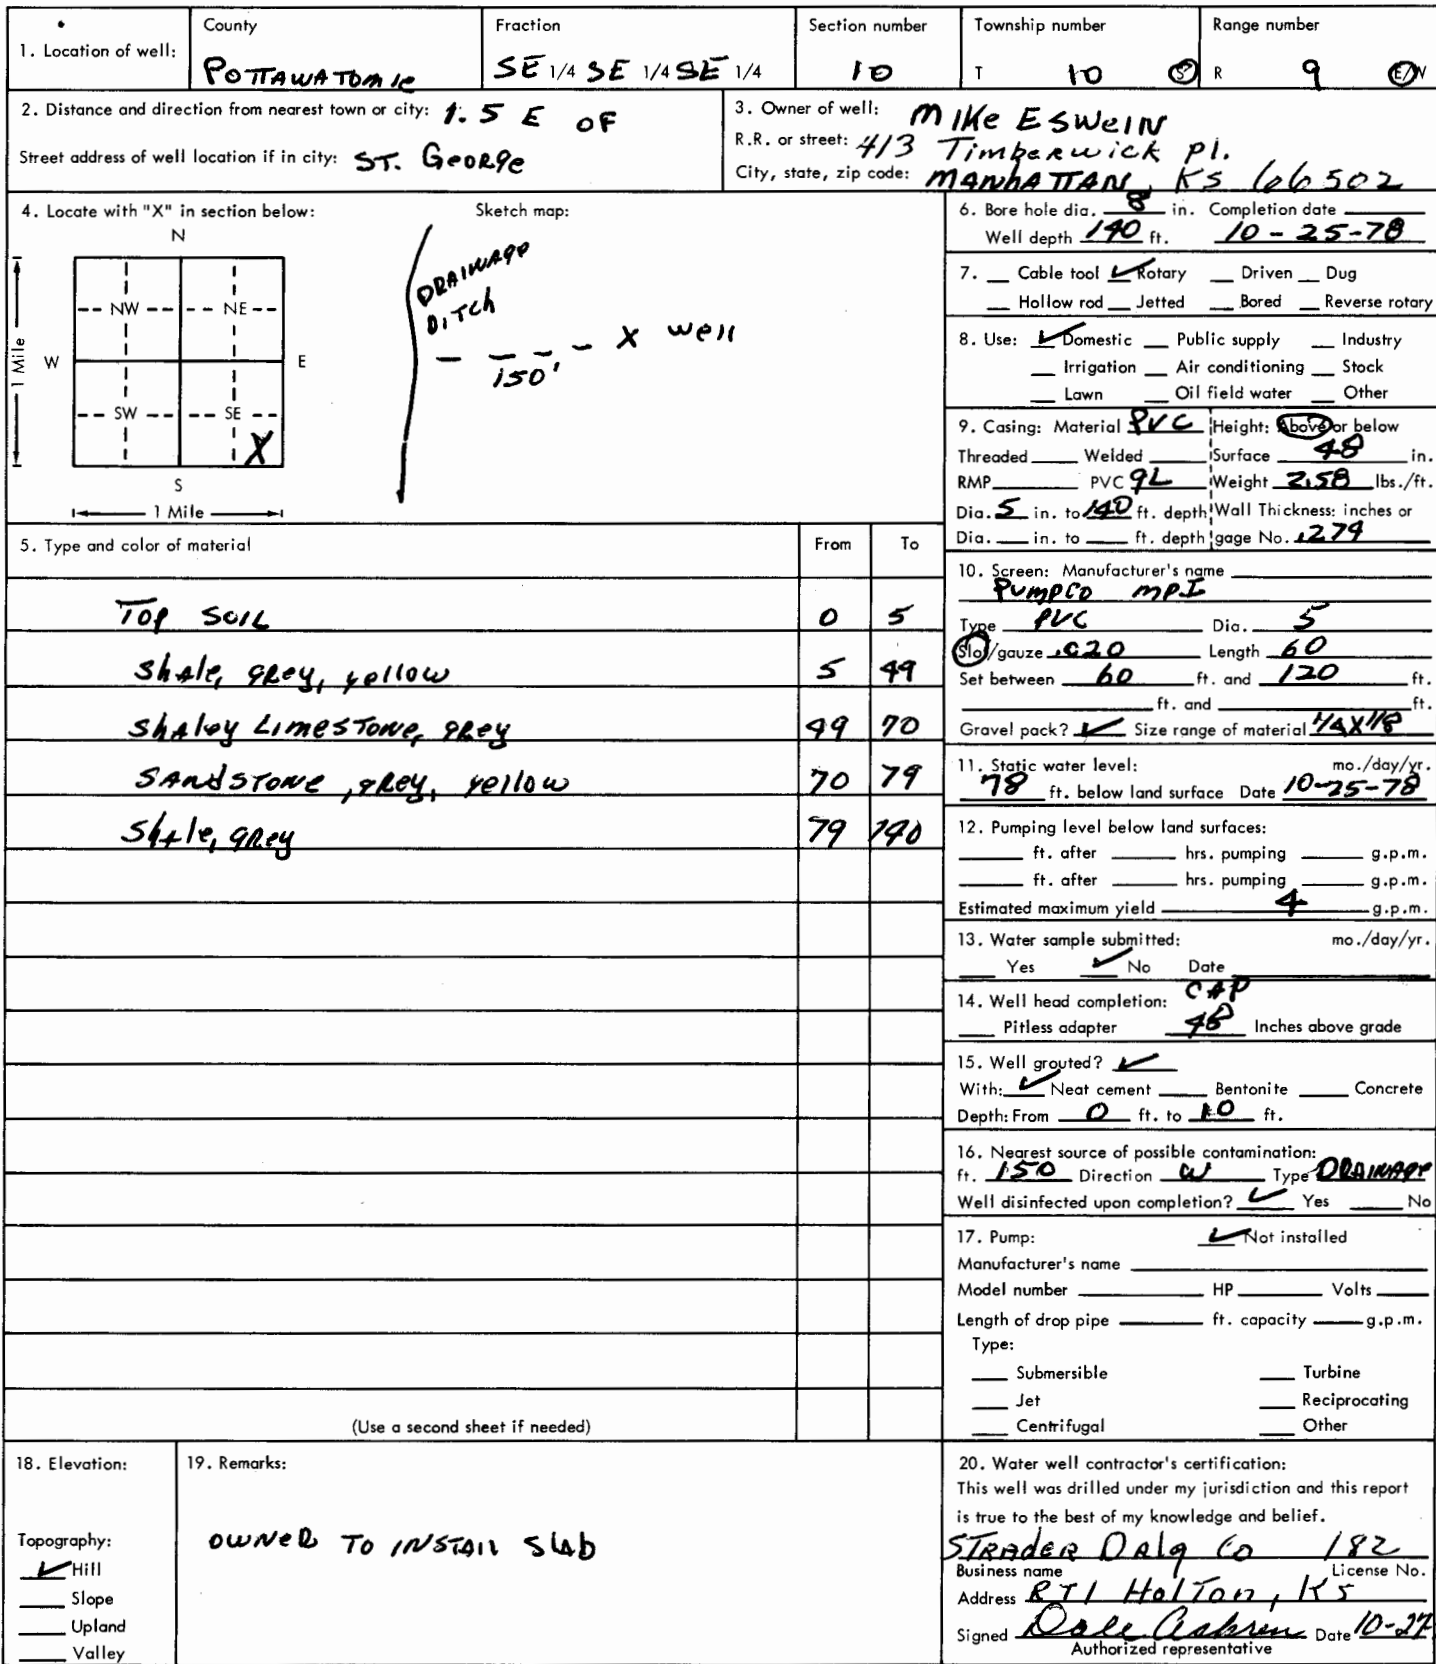 1. Location of well:
County
POTTAWATOMIE
Fraction
SE 1/4 SE 1/4 SE 1/4
Section number
10
Township number
T 10 S
Range number
R 9 E/W
2. Distance and direction from nearest town or city: 1.5 E OF
Street address of well location if in city: ST. GeoRge
3. Owner of well: MIKe ESWeIN
R.R. or street: 413 TimbeRwick pl.
City, state, zip code: MANhATTAN, KS 66502
4. Locate with "X" in section below:
N
NW NE
W E
SW SE
X
S
1 Mile
1 Mile
Sketch map:
DRAINAGE
DITCH
150'
X well
5. Type and color of material From To
TOP SOIL 0 5
ShAle, gRey, yellow 5 49
ShAley LIMESTONE, gRey 49 70
SANdSTONE, gRey, yellow 70 79
ShAle, gRey 79 140
(Use a second sheet if needed)
6. Bore hole dia. 8 in. Completion date
Well depth 140 ft. 10-25-78
7. Cable tool ✓ Rotary Driven Dug
Hollow rod Jetted Bored Reverse rotary
8. Use: ✓ Domestic Public supply Industry
Irrigation Air conditioning Stock
Lawn Oil field water Other
9. Casing: Material PVC Height: Above or below
Threaded Welded Surface 48 in.
RMP PVC GL Weight 2.58 lbs./ft.
Dia. 5 in. to 140 ft. depth Wall Thickness: inches or
Dia. in. to ft. depth gage No. .274
10. Screen: Manufacturer's name
PUMPCO MPI
Type PVC Dia. 5
Slot/gauze .020 Length 60
Set between 60 ft. and 120 ft.
ft. and ft.
Gravel pack? ✓ Size range of material 1/4X1/8
11. Static water level: mo./day/yr.
78 ft. below land surface Date 10-25-78
12. Pumping level below land surfaces:
ft. after hrs. pumping g.p.m.
ft. after hrs. pumping g.p.m.
Estimated maximum yield 4 g.p.m.
13. Water sample submitted: mo./day/yr.
Yes ✓ No Date
14. Well head completion: CAP
Pitless adapter 48 Inches above grade
15. Well grouted? ✓
With: ✓ Neat cement Bentonite Concrete
Depth: From 0 ft. to 10 ft.
16. Nearest source of possible contamination:
ft. 150 Direction W Type DRAINAGE
Well disinfected upon completion? ✓ Yes No
17. Pump: ✓ Not installed
Manufacturer's name
Model number HP Volts
Length of drop pipe ft. capacity g.p.m.
Type:
Submersible Turbine
Jet Reciprocating
Centrifugal Other
18. Elevation:
Topography:
✓ Hill
Slope
Upland
Valley
19. Remarks:
OWNER TO INSTALL SlAb
20. Water well contractor's certification:
This well was drilled under my jurisdiction and this report
is true to the best of my knowledge and belief.
STRADER DRlg Co 182
Business name License No.
Address RT1 HolTon, KS
Signed Dale Date 10-27
Authorized representative